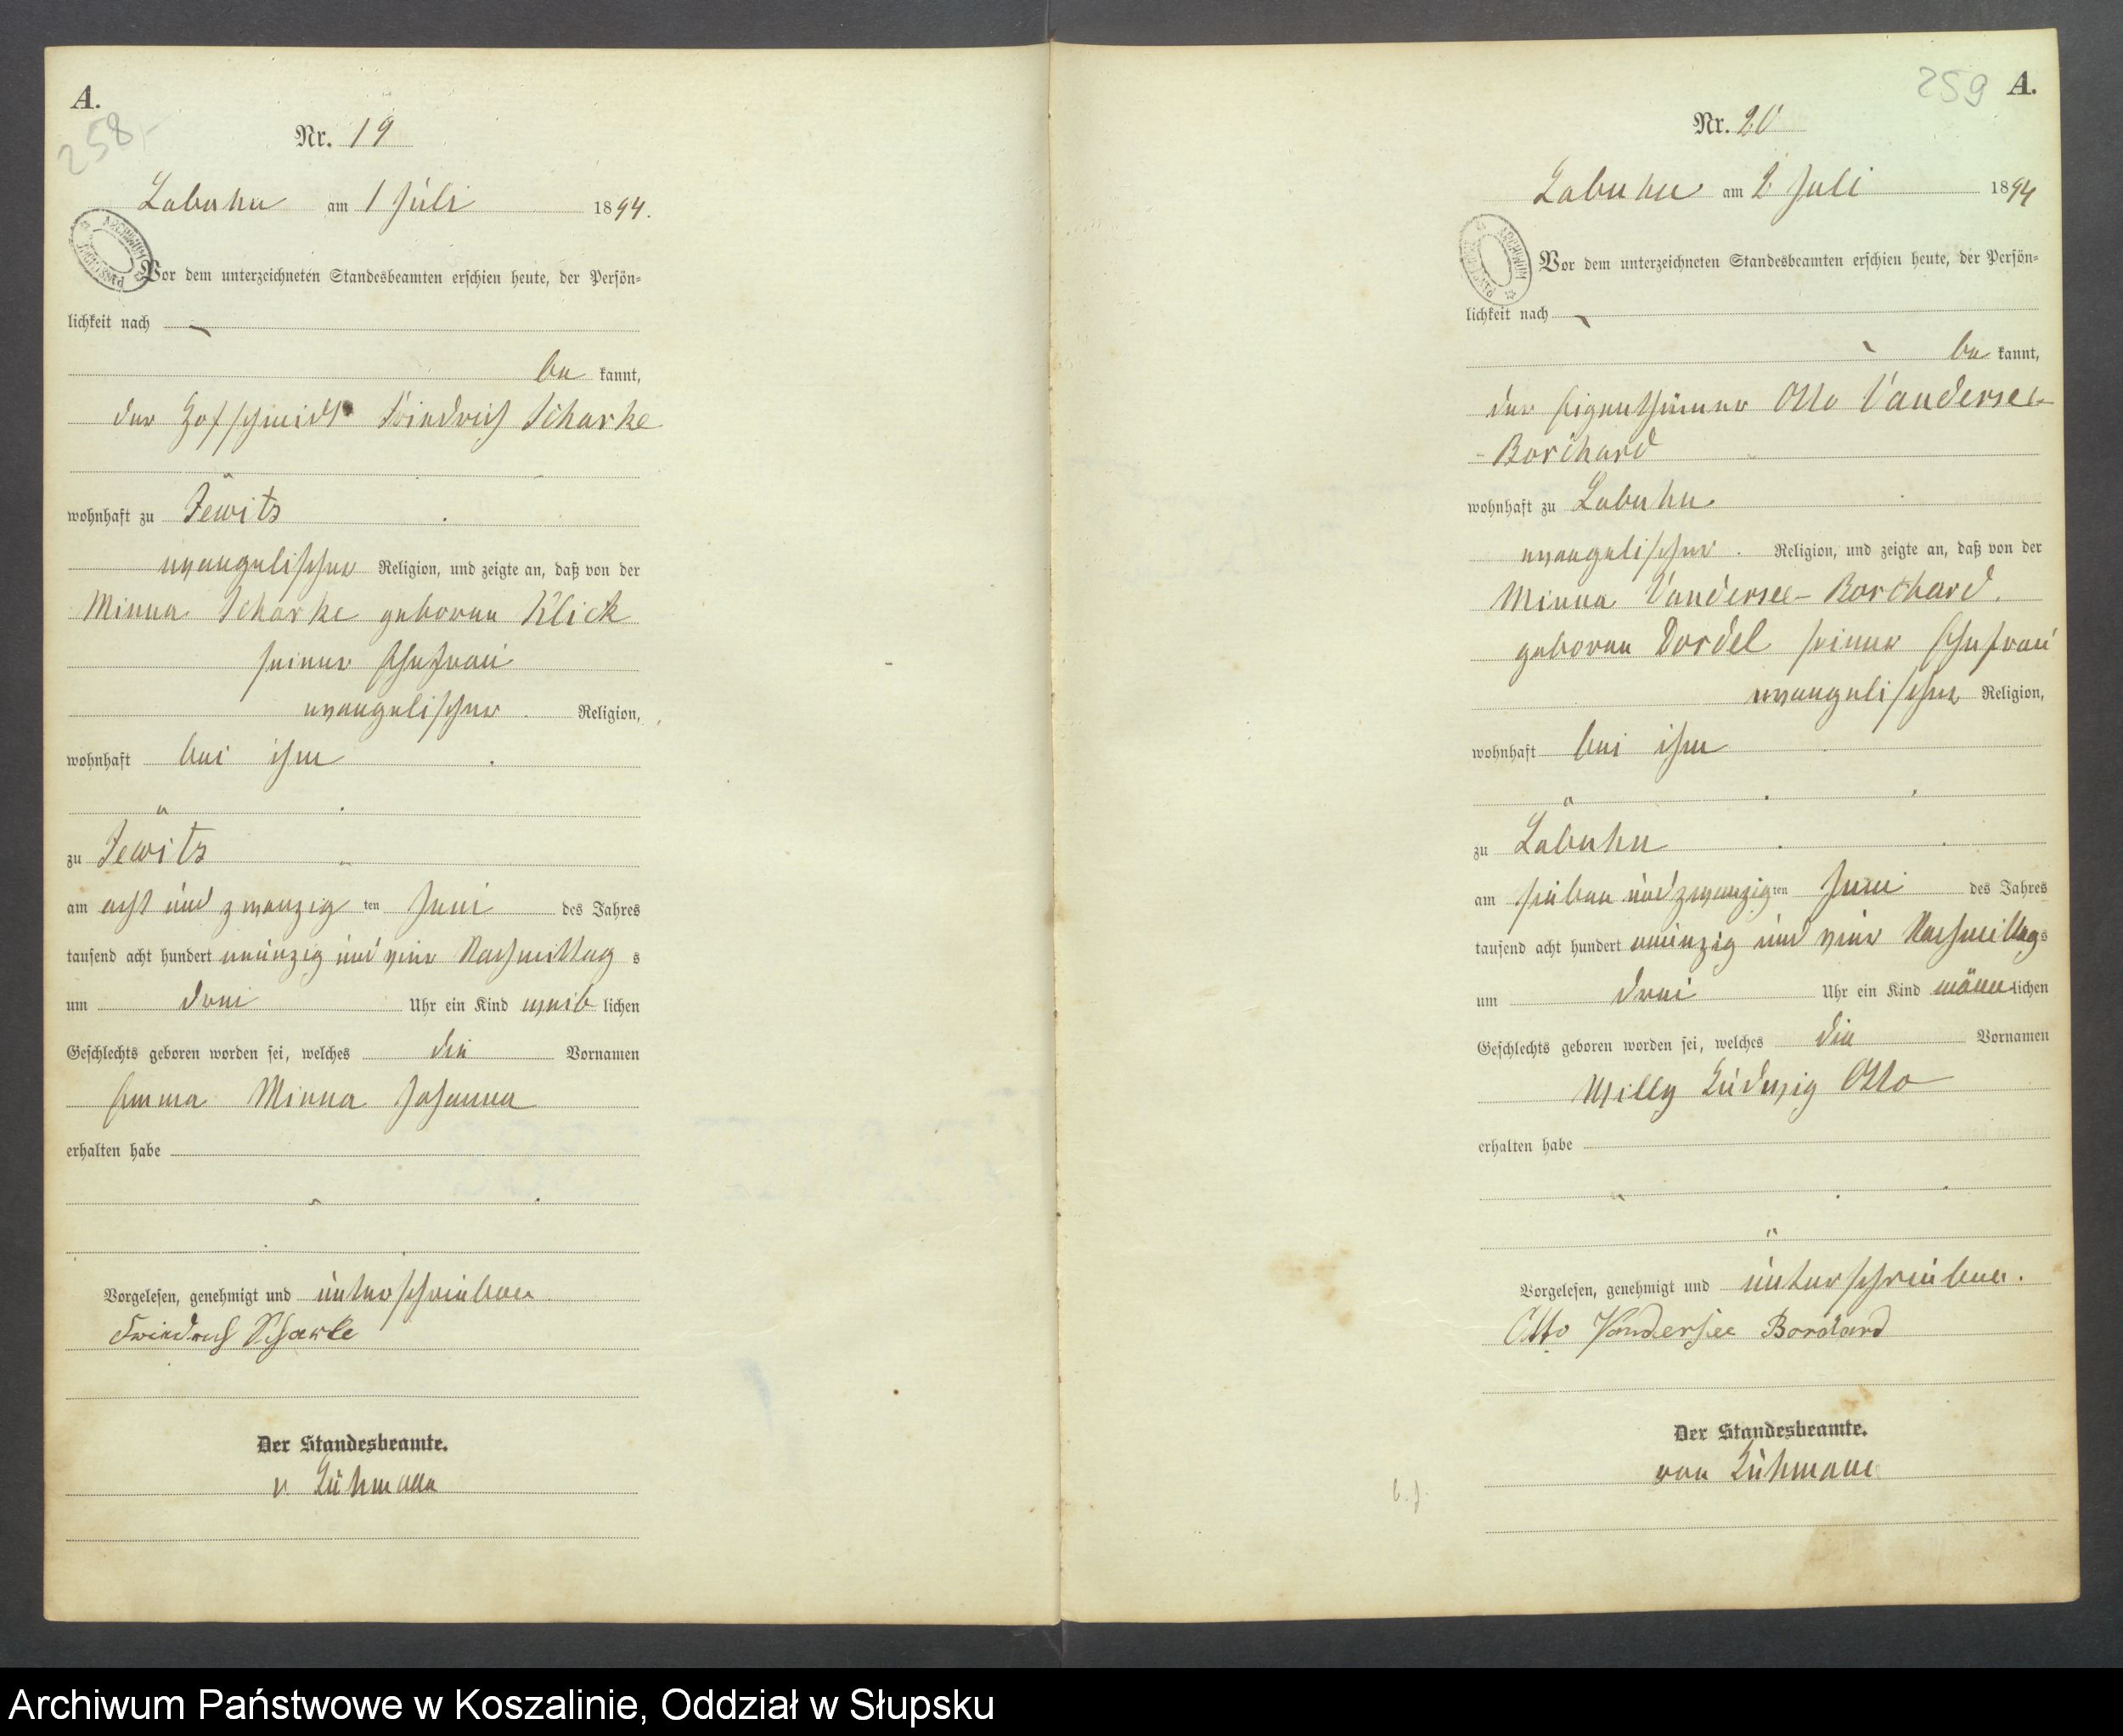 A.
258,-
Nr. 19
Labuhn am 1 Juli 1894.
Vor dem unterzeichneten Standesbeamten erschien heute, der Persön=
lichkeit nach
be kannt,
der Hofschmidt Friedrich Scharke
wohnhaft zu Jewitz
evangelischer Religion, und zeigte an, daß von der
Minna Scharke geboren Klick
seiner Ehefrau
evangelischer Religion,
wohnhaft bei ihm
zu Jewitz
am acht und zwanzig ten Juni des Jahres
tausend acht hundert neunzig und vier Nachmittag s
um drei Uhr ein Kind weib lichen
Geschlechts geboren worden sei, welches die Vornamen
Emma Minna Johanna
erhalten habe
Vorgelesen, genehmigt und unterschrieben
Friedrich Scharke
Der Standesbeamte.
v. Lühmann
259 A.
Nr. 20
Labuhn am 2 Juli 1894
Vor dem unterzeichneten Standesbeamten erschien heute, der Persön=
lichkeit nach
be kannt,
der Eigenthümer Otto Vandersee-
- Borchard
wohnhaft zu Labuhn
evangelischer Religion, und zeigte an, daß von der
Minna Vandersee- Borchard.
geboren Dordel seiner Ehefrau
evangelischer Religion,
wohnhaft bei ihm
zu Labuhn
am sieben und zwanzig ten Juni des Jahres
tausend acht hundert neunzig und vier Nachmittag s
um drei Uhr ein Kind männ lichen
Geschlechts geboren worden sei, welches die Vornamen
Willy Ludwig Otto
erhalten habe
Vorgelesen, genehmigt und unterschrieben.
Otto Vandersee Borchard
Der Standesbeamte.
von Lühmann
Archiwum Państwowe w Koszalinie, Oddział w Słupsku